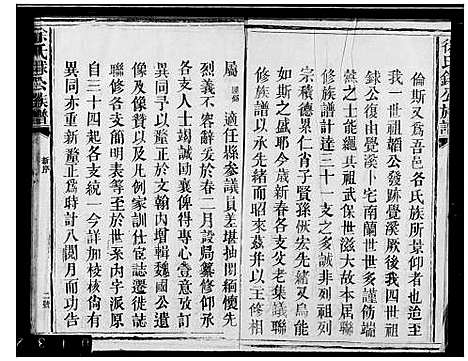 倫斯又為吾邑各氏族所景仰者也追至
我一世祖韜公發跡覺溪厥後我四世祖
銶公復由覺溪卜宅南蘭世世多謹飭端
愨之士能繩其祖武保世滋大故本屆聯
修族譜計達三十一支之多誠非列祖列
宗積德累仁肖子賢孫恢宏先緒又曷克
如斯之盛耶今歲新春各支父老集議聯
修族譜以承先緒而昭來茲并以主修相
屬
適任縣參議員差堪抽閒緬懷先
烈義不容辭爰於春二月設局纂修承
各支人士竭誠勷襄俾得專心壹意改訂
異同予以釐正於文翰內增輯魏國公遺
像及像贊以及凡例家訓仕宦誌遷徙誌
聯修各支簡明表等至於世系內字派原
自三十四起各支統一今詳加校核倘有
異同亦重新釐正為時計八閱月而功告
徐氏銶公族譜
新序
二號